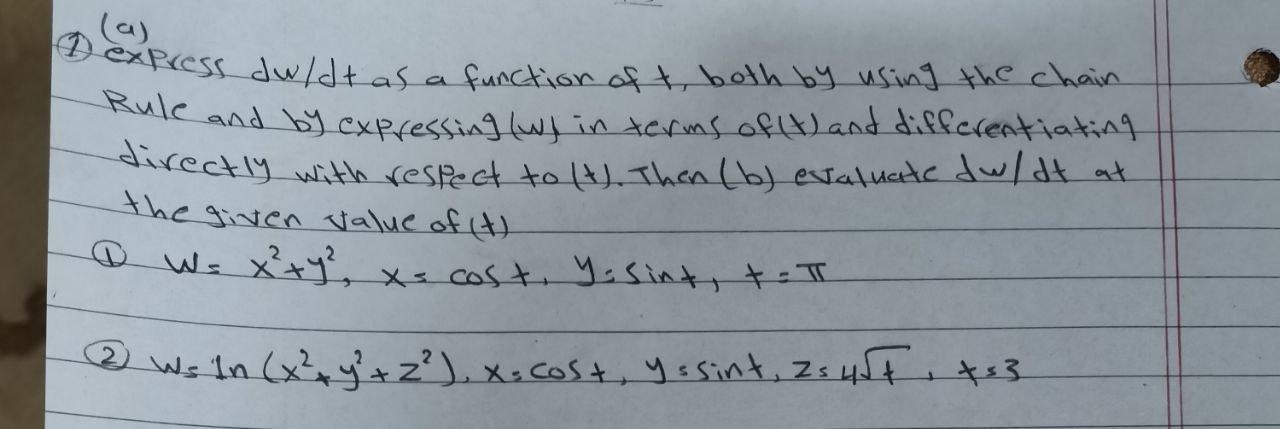 (a)
① express dw/dt as a function of t, both by using the chain
Rule and by expressing (w) in terms of (t) and differentiating
directly with respect to (t). Then (b) evaluate dw/dt at
the given value of (t)
① W = x²+y², x = cos t, y = sin t, t = π
② W = ln (x²+y²+z²), x = cos t, y = sin t, z = 4√t, t = 3